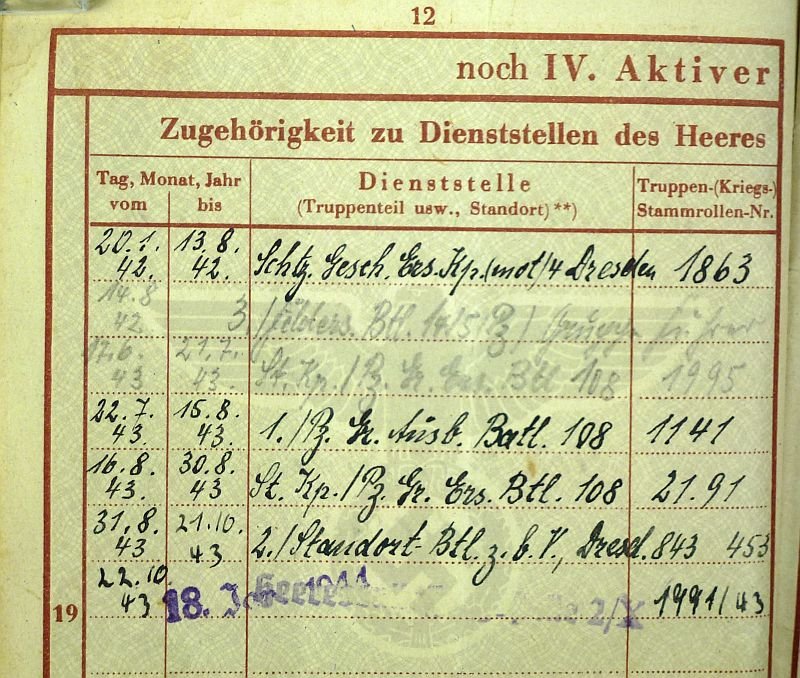 12
noch IV. Aktiver
Zugehörigkeit zu Dienststellen des Heeres
Tag, Monat, Jahr
vom bis
Dienststelle
(Truppenteil usw., Standort)**)
Truppen-(Kriegs-)
Stammrollen-Nr.
20.1. 42. 13.8. 42. Schtz. Gesch. Ers. Kp. (mot) 4 Dresden 1863
14.8 42 3./Felders. Btl.
17.6. 43 21.7. 43. St. Kp./Pz. Gr. Ers. Btl 108 1995
22.7. 43. 15.8. 43. 1./Pz. Gr. Ausb. Batl. 108 1141
16.8. 43. 30.8. 43 St. Kp./Pz. Gr. Ers. Btl. 108 21.91
31.8. 43 21.10. 43 2./Standort-Btl. z. b. V., Dresd. 843 453
22.10. 43 18. 2/X 1991/43
19